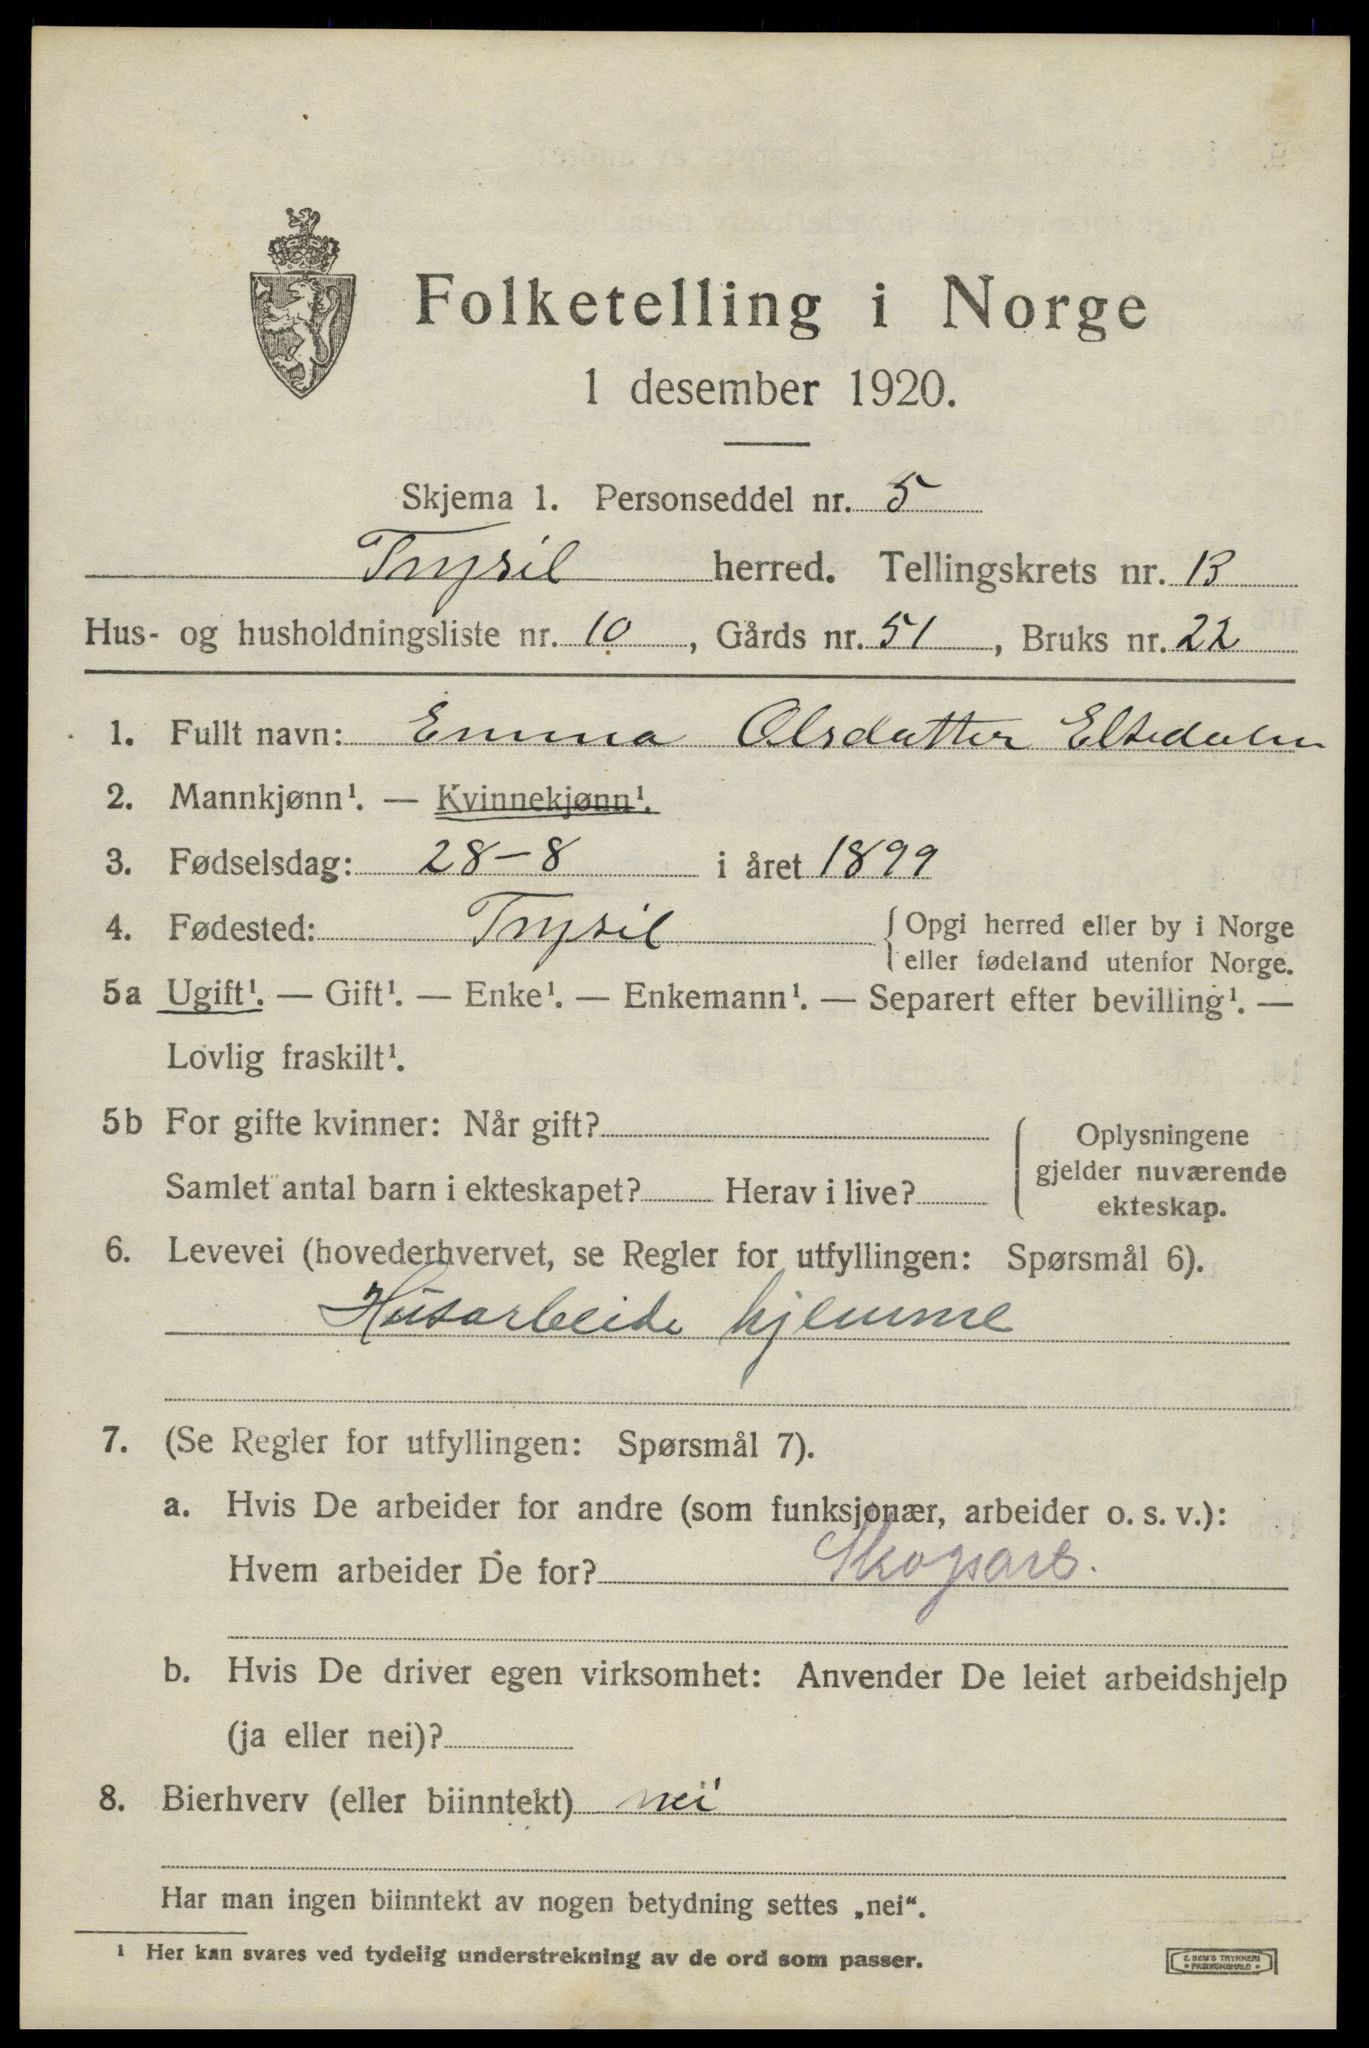 Folketelling i Norge
1 desember 1920.
Skjema 1. Personseddel nr. 5
Trysil herred. Tellingskrets nr. 13
Hus- og husholdningsliste nr. 10, Gårds nr. 51, Bruks nr. 22
1. Fullt navn: Emma Olsdatter
2. Mannkjønn¹. — Kvinnekjønn¹.
3. Fødselsdag: 28-8 i året 1899
4. Fødested: Trysil {Opgi herred eller by i Norge
eller fødeland utenfor Norge.
5a Ugift¹. — Gift¹. — Enke¹. — Enkemann¹. — Separert efter bevilling¹. —
Lovlig fraskilt¹.
5b For gifte kvinner: Når gift?
Samlet antal barn i ekteskapet? Herav i live?
Oplysningene
gjelder nuværende
ekteskap.
6. Levevei (hovederhvervet, se Regler for utfyllingen: Spørsmål 6).
Husarbeide hjemme
7. (Se Regler for utfyllingen: Spørsmål 7).
a. Hvis De arbeider for andre (som funksjonær, arbeider o. s. v.):
Hvem arbeider De for? Skogsarb.
b. Hvis De driver egen virksomhet: Anvender De leiet arbeidshjelp
(ja eller nei)?
8. Bierhverv (eller biinntekt) nei
Har man ingen biinntekt av nogen betydning settes „nei“.
¹ Her kan svares ved tydelig understrekning av de ord som passer.